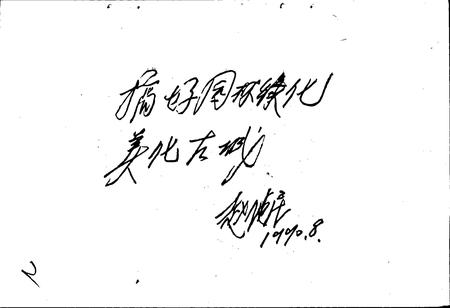 搞好园林绿化
美化古城
1990.8.
2